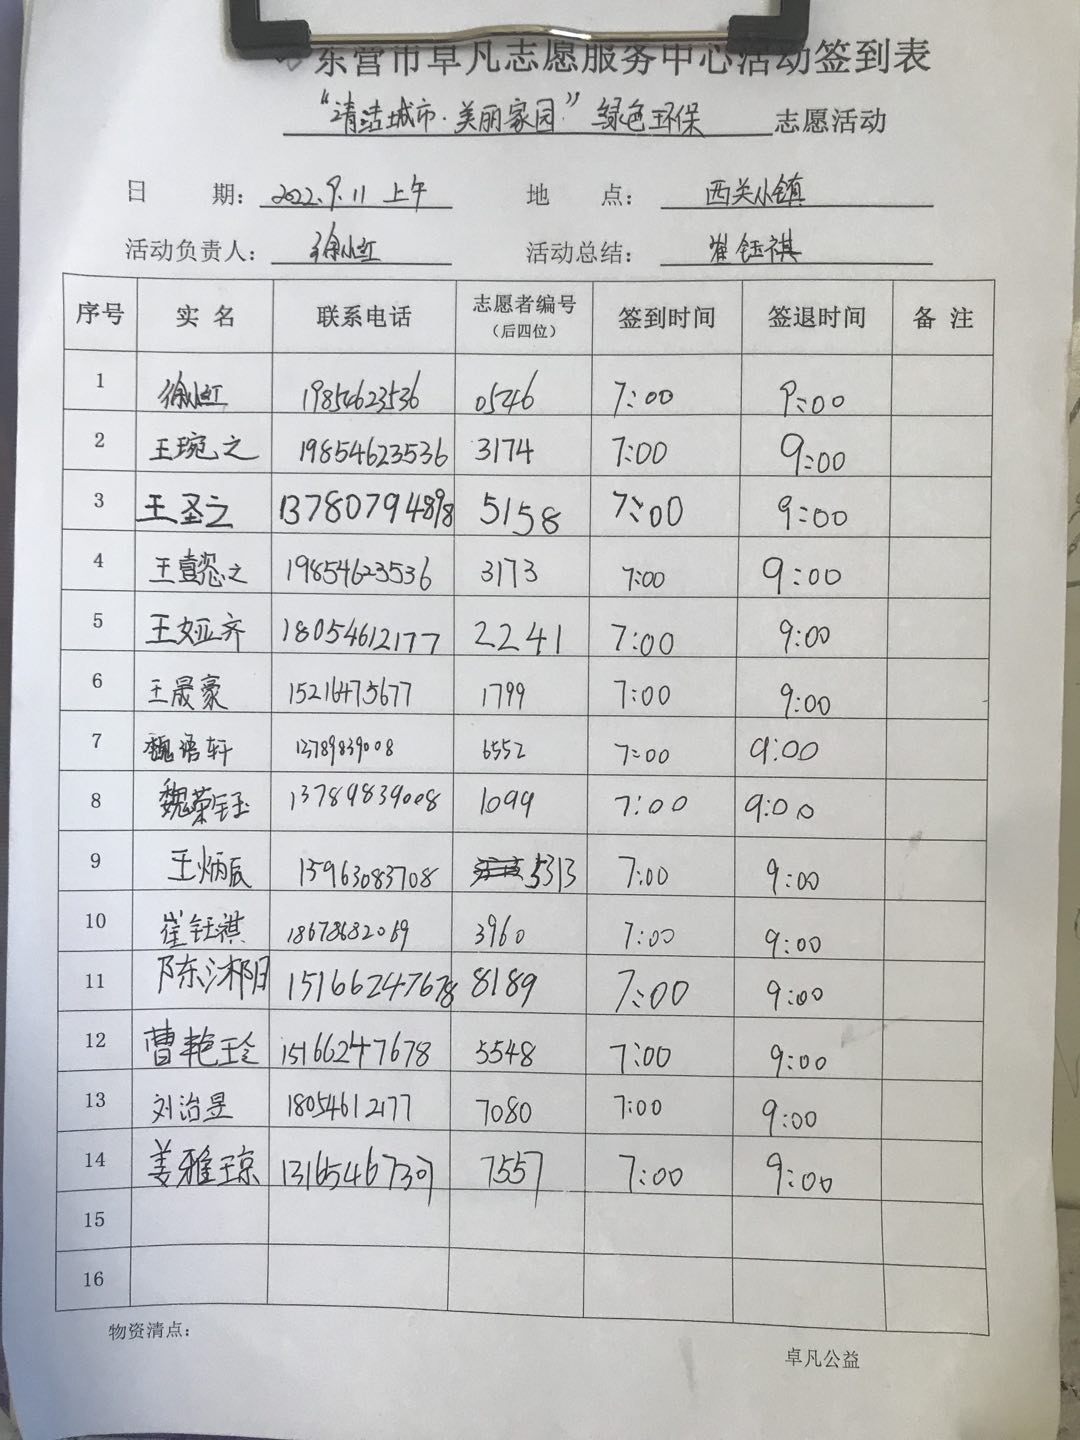 东营市卓凡志愿服务中心活动签到表
“清洁城市·美丽家园”绿色环保 志愿活动
日 期: 2022.9.11 上午 地 点: 西关小镇
活动负责人: 徐小红 活动总结: 崔钰祺
序号 实名 联系电话 志愿者编号 (后四位) 签到时间 签退时间 备注
1 徐小红 19854623536 0546 7:00 9:00
2 王琬之 19854623536 3174 7:00 9:00
3 王圣之 13780794898 5158 7:00 9:00
4 王懿之 19854623536 3173 7:00 9:00
5 王娅齐 18054612177 2241 7:00 9:00
6 王晟豪 15216475677 1799 7:00 9:00
7 魏语轩 13789839008 6552 7:00 9:00
8 魏荣钰 13789839008 1099 7:00 9:00
9 王炳辰 15963083708 5313 7:00 9:00
10 崔钰祺 18678682069 3960 7:00 9:00
11 陈沐阳 15166247678 8189 7:00 9:00
12 曹艳玲 15166247678 5548 7:00 9:00
13 刘治昱 18054612177 7080 7:00 9:00
14 姜雅琼 13165467307 7557 7:00 9:00
15
16
物资清点:
卓凡公益